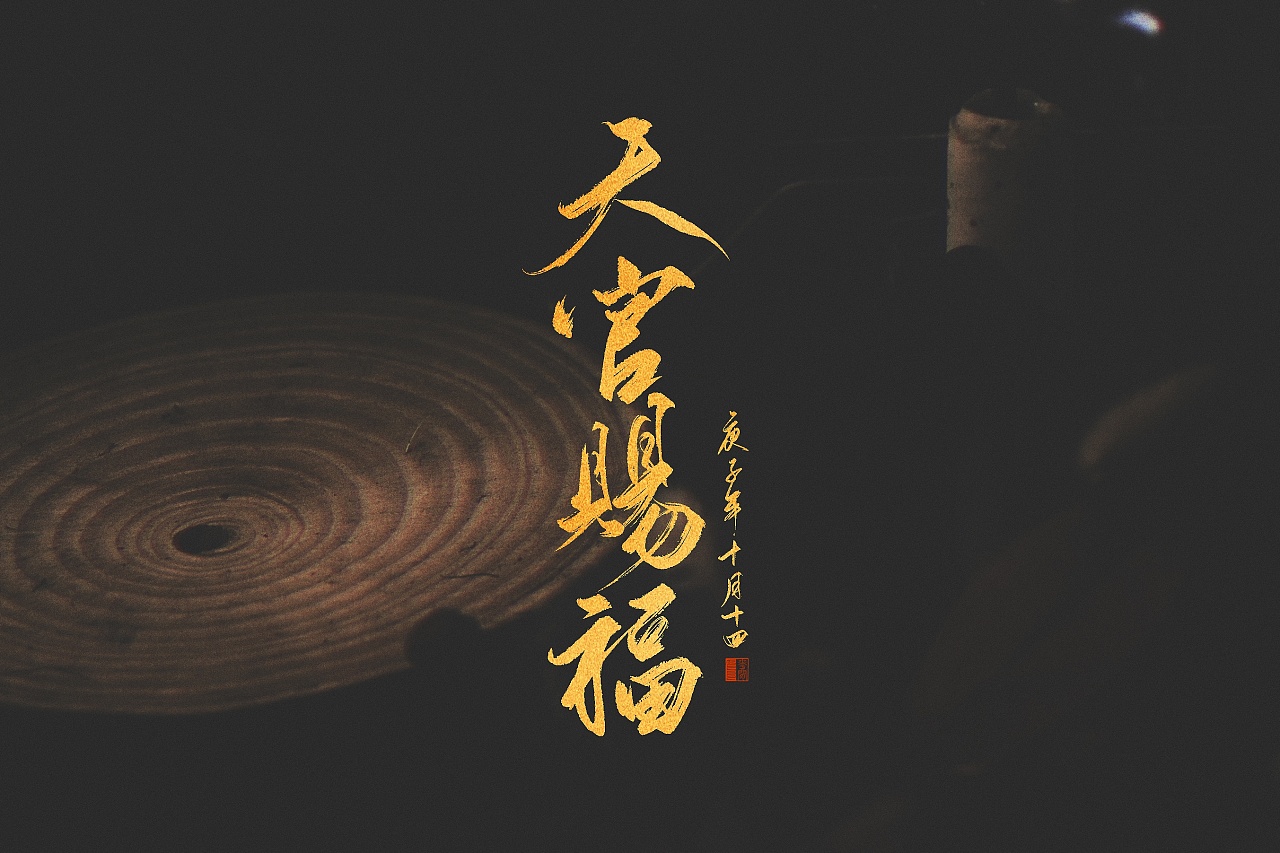 天官賜福
庚子年十月十四